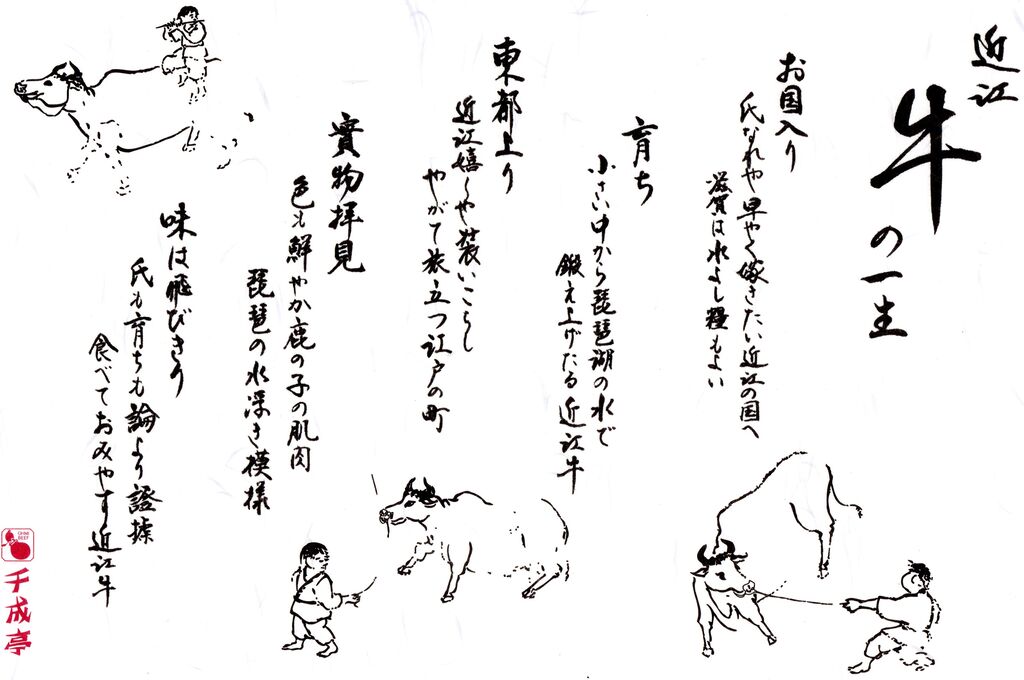 近江
牛
の一生
お国入り
氏なれや早やく嫁きたい近江の国へ
滋賀は水よし糧もよい
育ち
小さい中から琵琶湖の水で
鍛え上げたる近江牛
東都上り
近江嬉しや装いこらし
やがて旅立つ江戸の町
實物拝見
色も鮮やか鹿の子の肌肉
琵琶の水深き模様
味は飛びきり
氏も育ちも論より證據
食べておみやす近江牛
OHMI
BEEF
千成亭